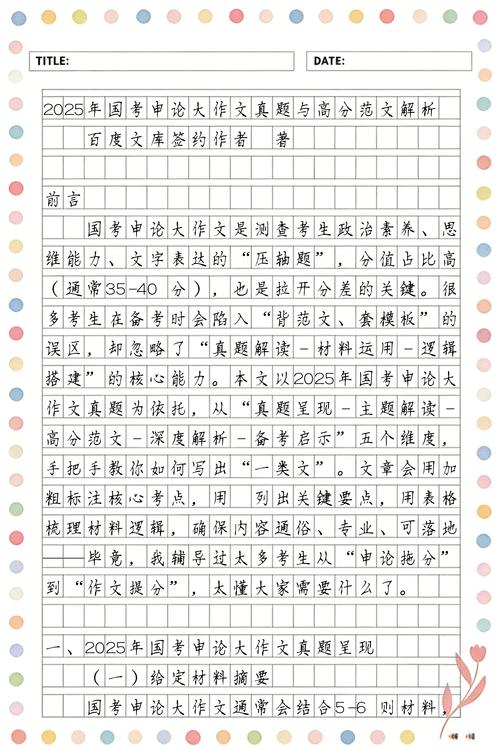 TITLE:
DATE:
2025年国考申论大作文真题与高分范文解析
百度文库签约作者 著
前言
国考申论大作文是测查考生政治素养、思
维能力、文字表达的“压轴题”，分值占比高
（通常35-40 分），也是拉开分差的关键。很
多考生在备考时会陷入“背范文、套模板”的
误区，却忽略了“真题解读-材料运用-逻辑
搭建”的核心能力。本文以2025年国考申论大
作文真题为依托，从“真题呈现-主题解读-
高分范文-深度解析-备考启示”五个维度，
手把手教你如何写出“一类文”。文章会用加
粗标注核心考点，用 列出关键要点，用表格
梳理材料逻辑，确保内容通俗、专业、可落地
——毕竟，我辅导过太多考生从“申论拖分”
到“作文提分”，太懂大家需要什么了。
一、2025年国考申论大作文真题呈现
（一）给定材料摘要
国考申论大作文通常会结合5-6 则材料，